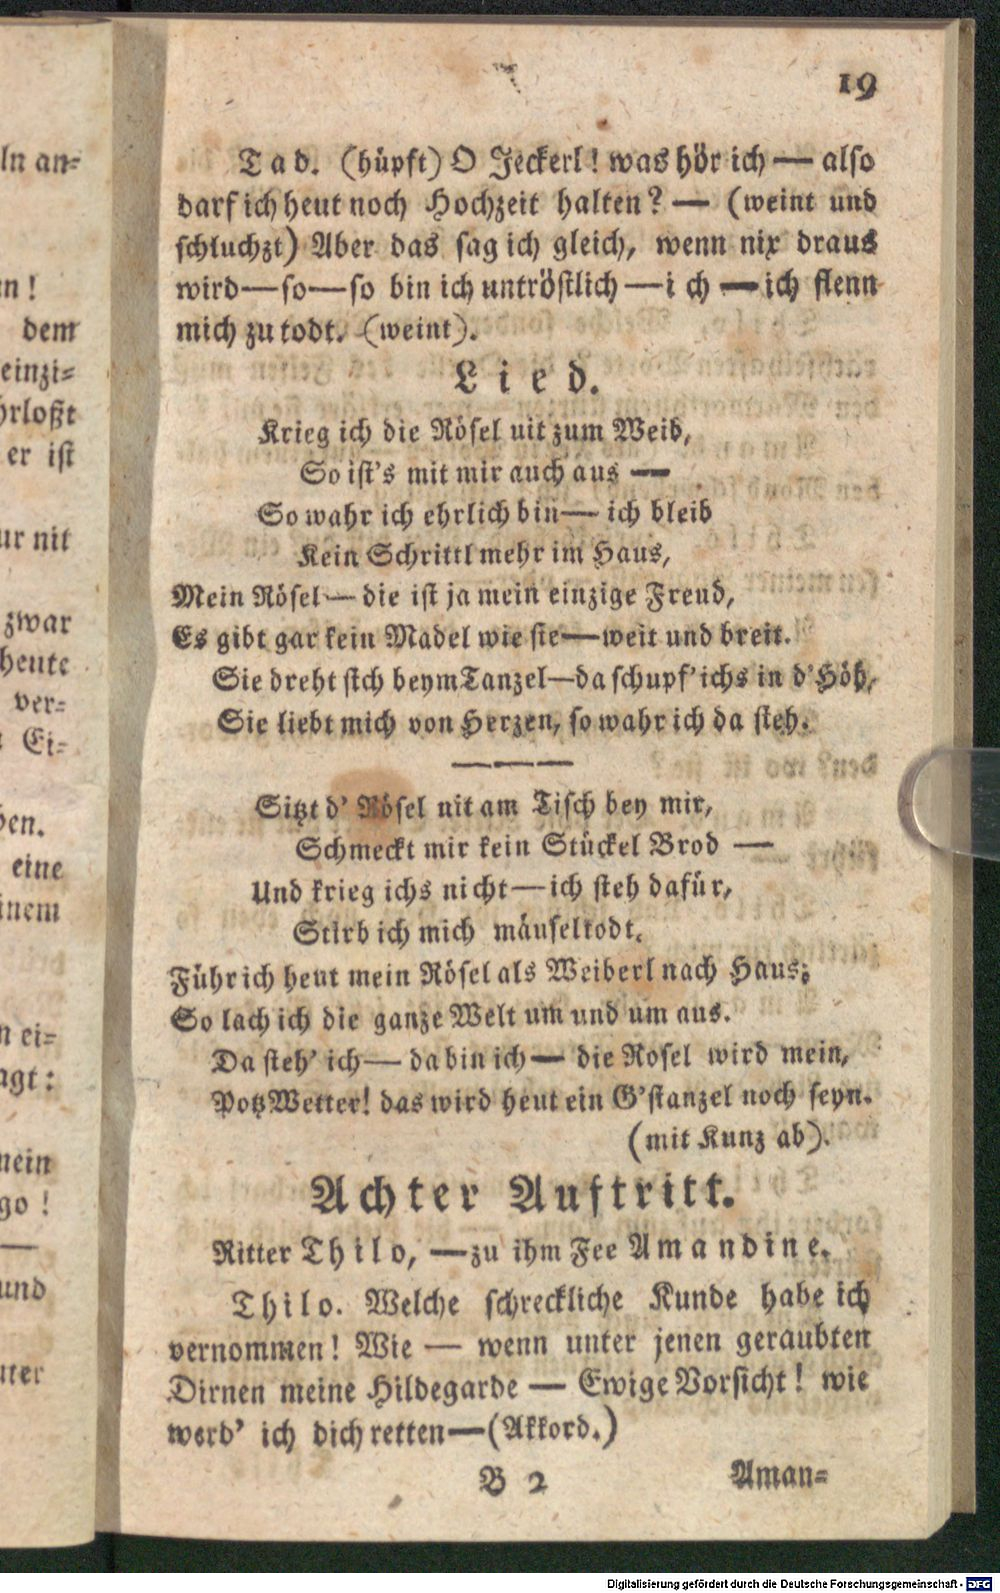 ln an-
n!
dem
einzi-
hrloßt
er ist
ur nit
zwar
heute
ver-
Ei-
ben.
eine
inem
n ei-
agt:
mein
go!
und
nter
19
Tad. (hüpft) O Jeckerl! was hör ich — also
darf ich heut noch Hochzeit halten? — (weint und
schluchzt) Aber das sag ich gleich, wenn nix draus
wird—so—so bin ich untröstlich—ich—ich flenn
mich zu todt. (weint).
Lied.
Krieg ich die Rösel nit zum Weib,
So ist's mit mir auch aus —
So wahr ich ehrlich bin— ich bleib
Kein Schrittl mehr im Haus,
Mein Rösel— die ist ja mein einzige Freud,
Es gibt gar kein Madel wie sie—weit und breit.
Sie dreht sich beym Tanzel—da schupf' ichs in d' Höh,
Sie liebt mich von Herzen, so wahr ich da steh.
Sitzt d' Rösel nit am Tisch bey mir,
Schmeckt mir kein Stückel Brod —
Und krieg ichs nicht—ich steh dafür,
Stirb ich mich mäuseltodt.
Führ ich heut mein Rösel als Weiberl nach Haus;
So lach ich die ganze Welt um und um aus.
Da steh' ich— da bin ich— die Rosel wird mein,
Potz Wetter! das wird heut ein G'stanzel noch seyn.
(mit Kunz ab).
Achter Auftritt.
Ritter Thilo, —zu ihm Fee Amandine.
Thilo. Welche schreckliche Kunde habe ich
vernommen! Wie — wenn unter jenen geraubten
Dirnen meine Hildegarde — Ewige Vorsicht! wie
werd' ich dich retten—(Akkord.)
B 2
Aman-
Digitalisierung gefördert durch die Deutsche Forschungsgemeinschaft - DFG